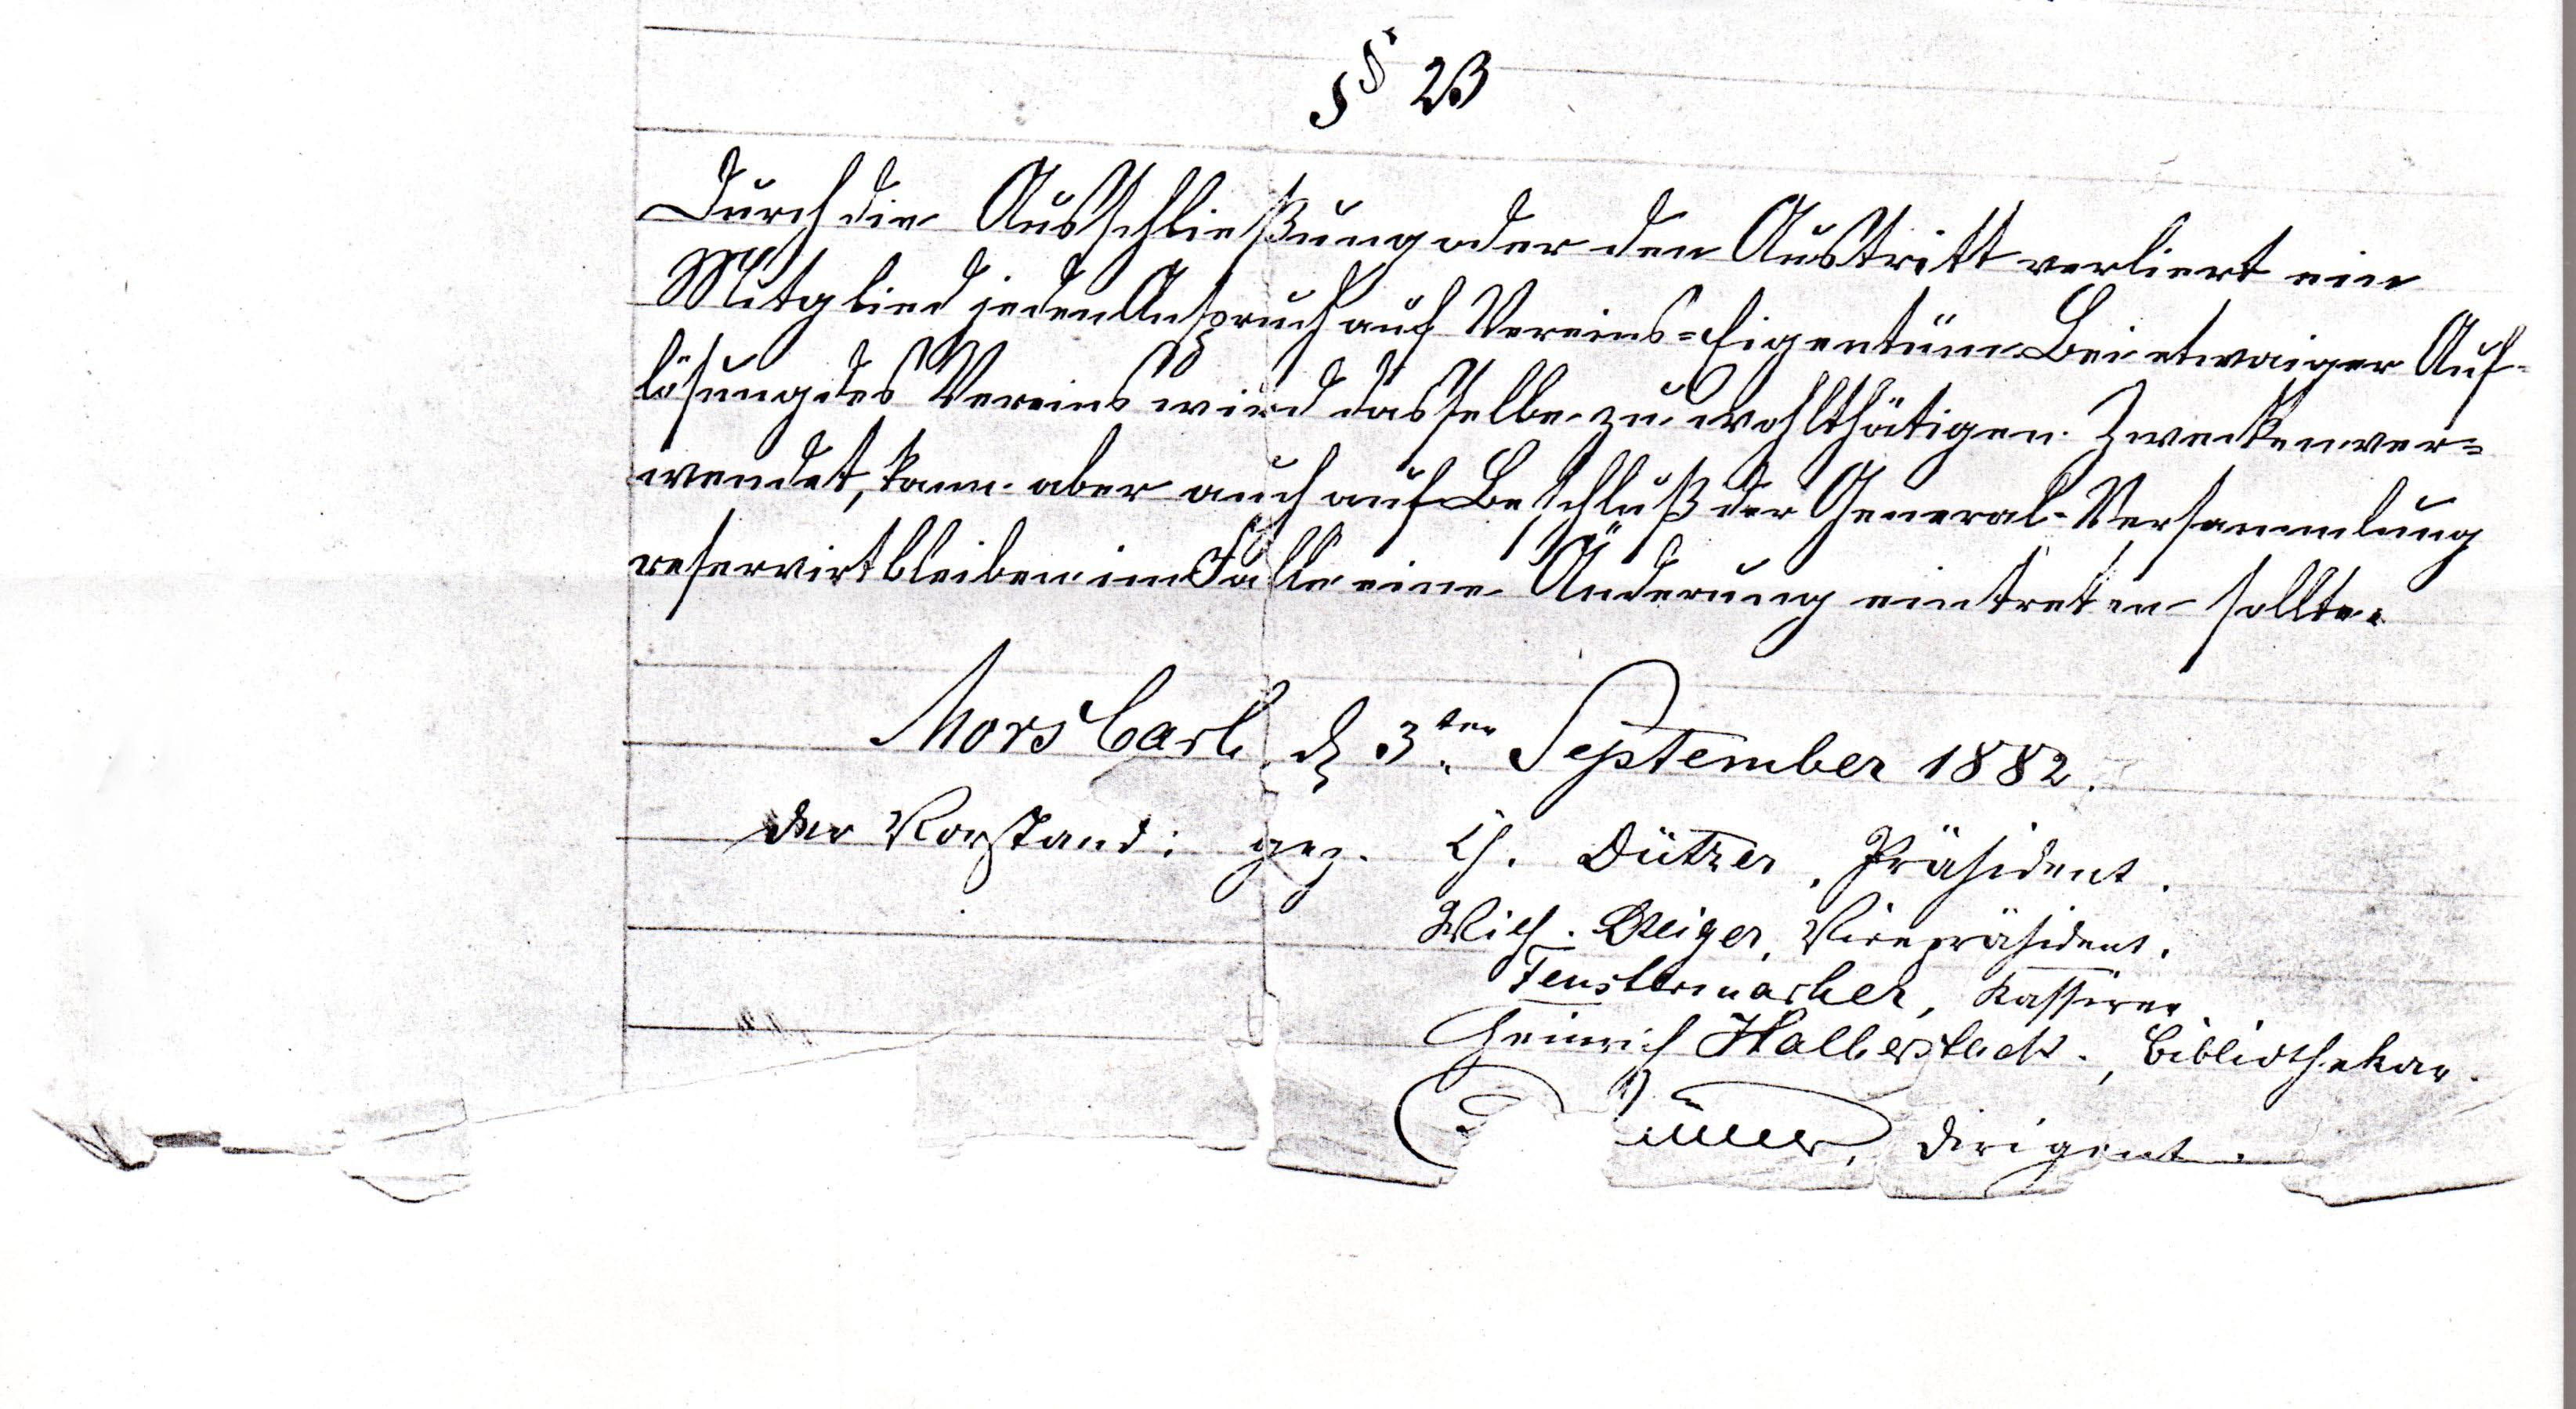 § 23
Durch die Ausschließung oder den Austritt verliert ein
Mitglied jeden Anspruch auf Vereins=Eigentum. Bei etwaiger Auf-
lösung des Vereins wird dasselbe zu wohlthätigen Zwecken ver=
wendet, kann aber auch auf Beschluß der General-Versammlung
reservirt bleiben im Falle eine Änderung eintreten sollte.
Morsbach d 3ten September 1882.
Der Vorstand: gez. Ch. Dützer, Präsident.
Wilh. Vicepräsident.
Fenstermacher, Kassirer
Heinrich Halberstadt., Bibliothekar.
Dirigent.